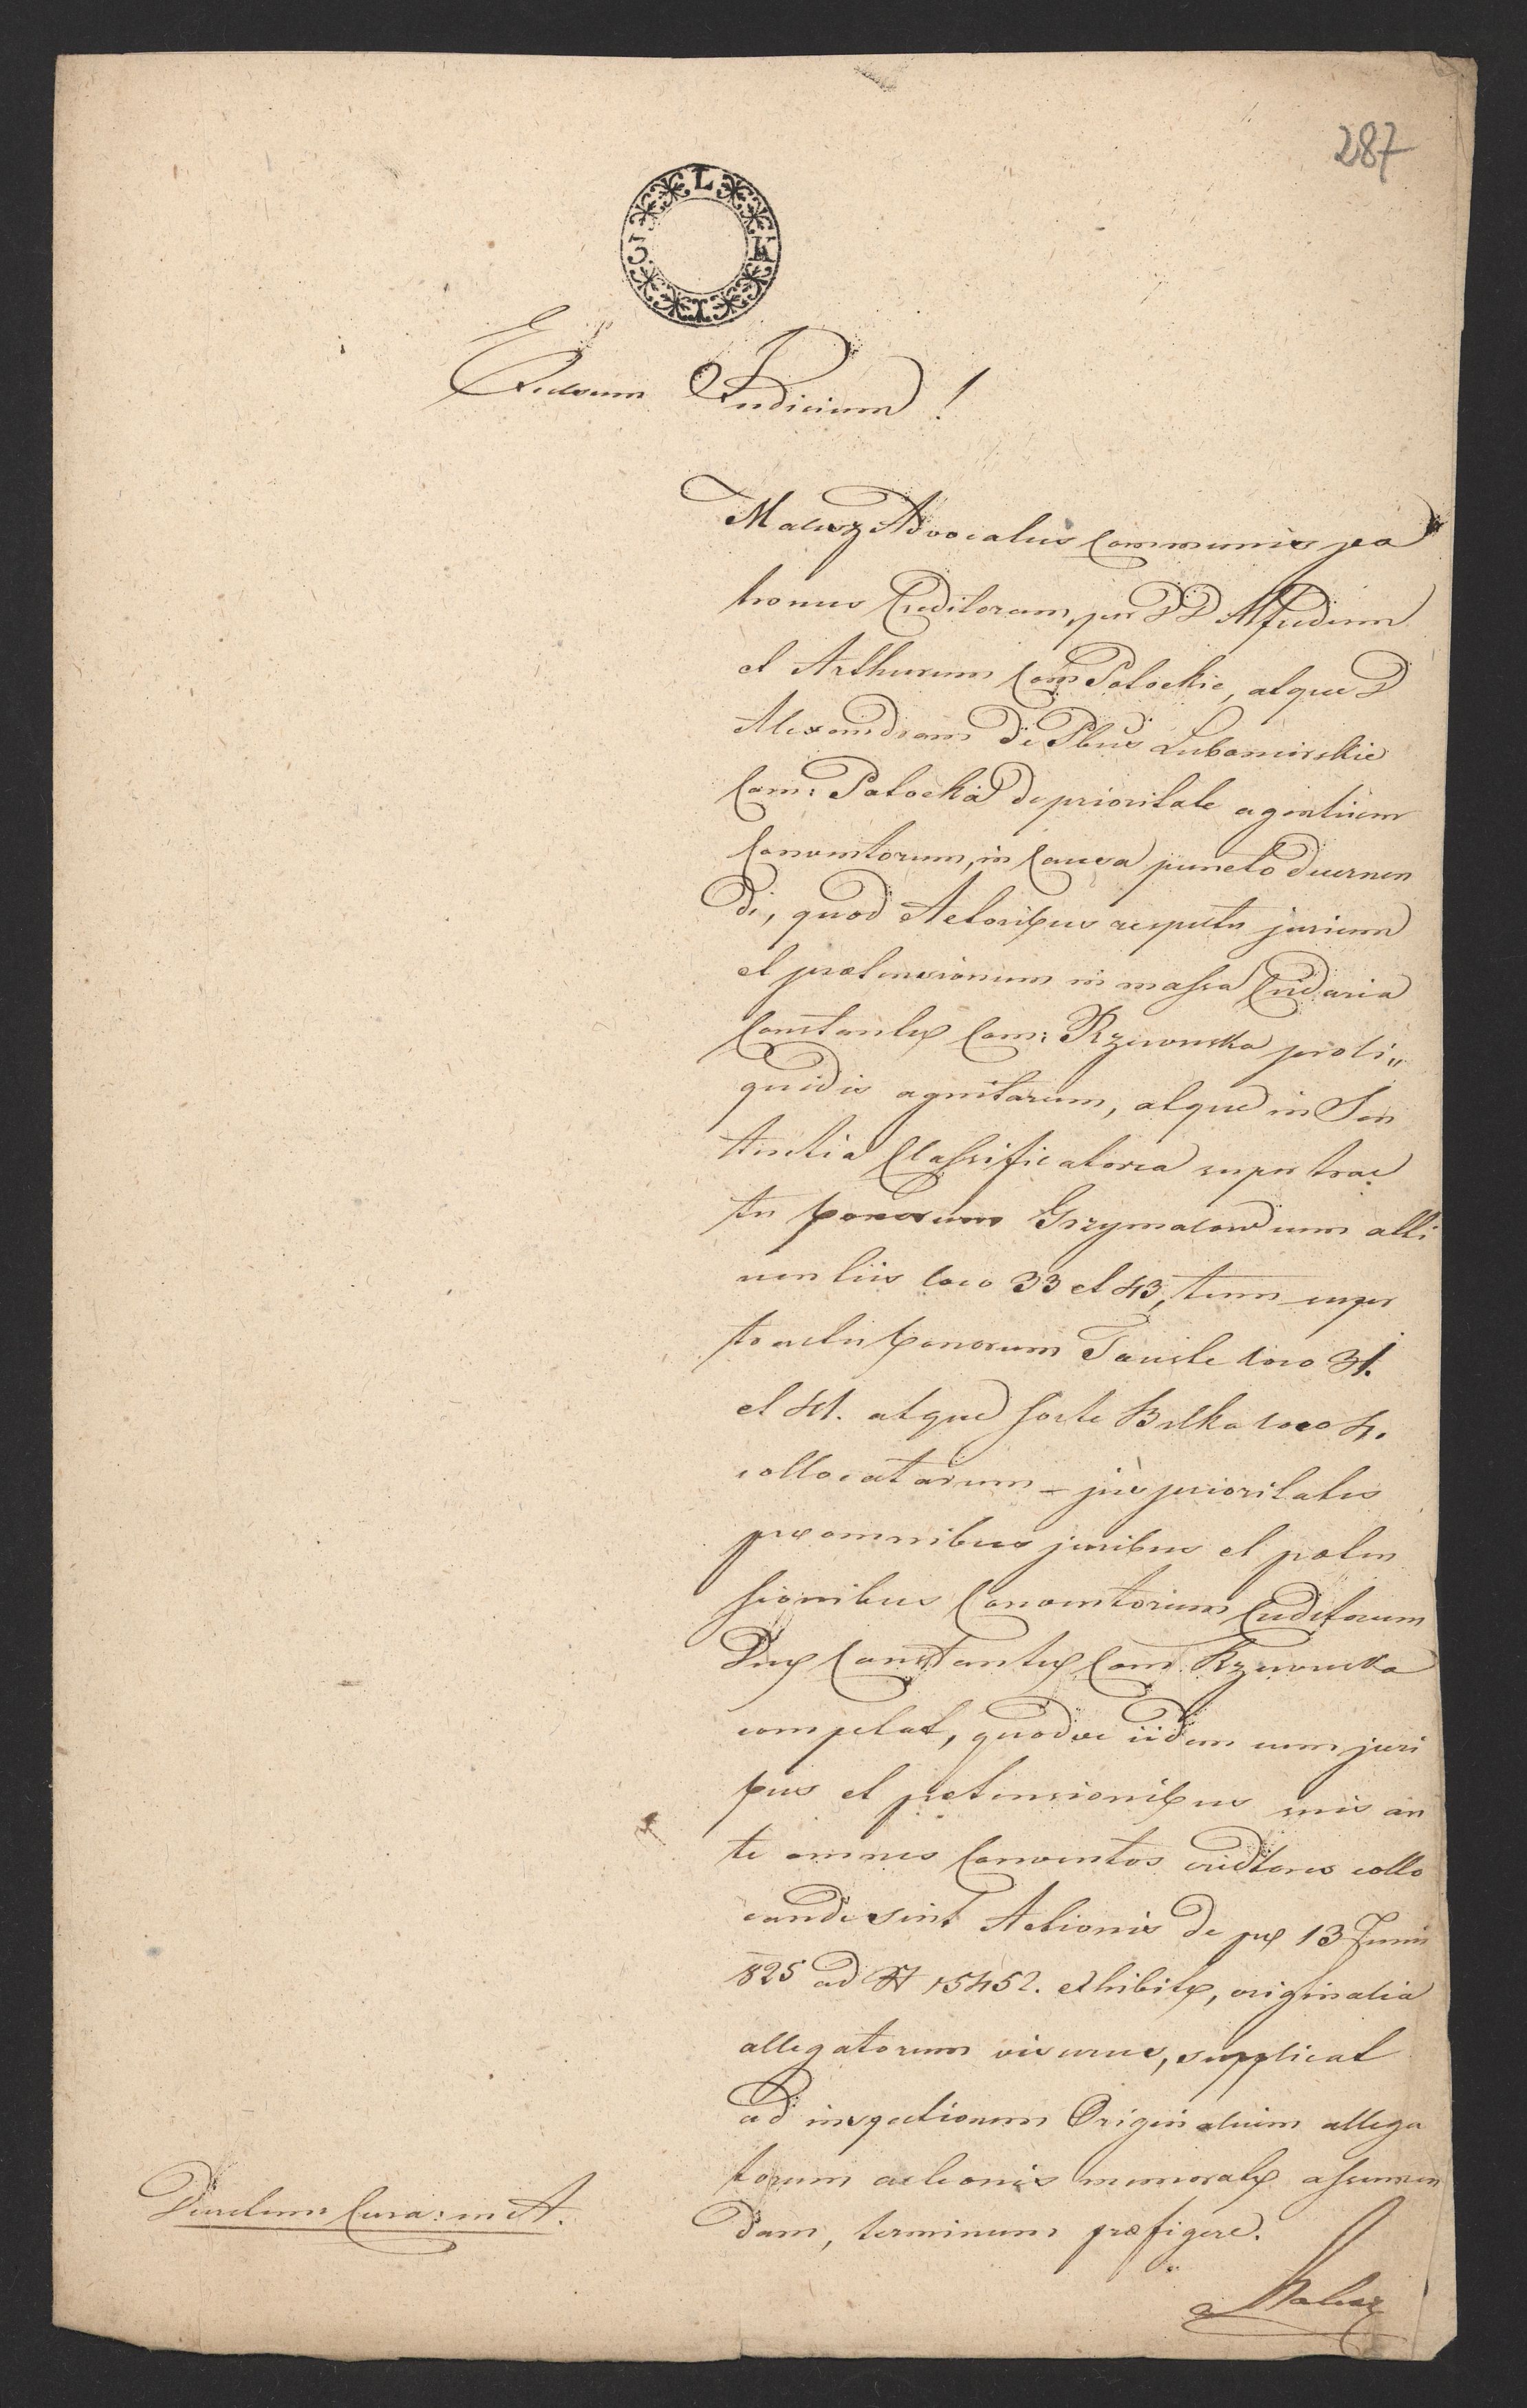 287
L
3 K
I
Excelsum Judicium!
Malisz Advocatus communis pa
tronus Creditorum, per DD Alfredum
et Arthurum Com: Potockie, atque D
Alexandram de Pbus Lubomirskie
Com: Potocka de prioritate agentium
Conventorum, in Causa puncto decernen
di, quod Actoribus respectu jurium
et praetensionum in massa Cridaria
Constantiae Com: Rzewuska pro li"
quidis agnitarum, atque in Sen
tentia Classificatoria super trac
tu bonorum Grzymałow cum atti
nentiis loco 33 et 43, tum super
tractu bonorum Touste loco 31.
et 41. atque sorte Bilka loco 4.
collocatarum – jus prioritatis
prae omnibus juribus et praeten
sionibus Conventorum Creditorum
Dnae Constantiae Com: Rzewuska
competat, quodve iidem cum juri
bus et praetensionibus suis an
te omnes Conventos creditores collo
candi sint Actionis de prae 13 Junii
825 ad N 15452. exhibitae, originalia
allegatorum visurus, supplicat
ad inspectionem Originalium allega
torum actionis memoratae assumen
dam, terminum praefigere.
Malisz